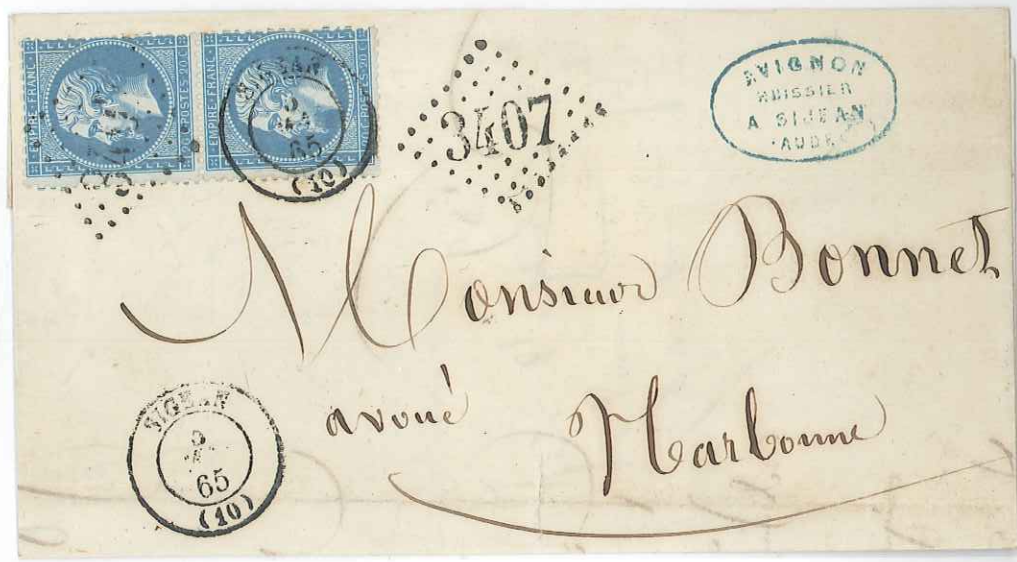 EMPIRE FRANC
POSTES 20 C
EMPIRE FRANC
POSTES 20 C
65
(10)
3407
AVIGNON
HUISSIER
A SIJEAN
AUDE
Monsieur Bonnet
avoué
Narbonne
SIGEAN
65
(10)